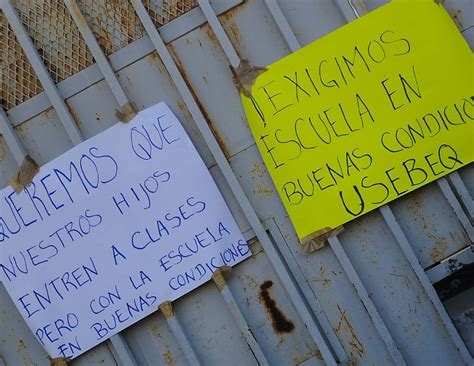 QUEREMOS QUE
NUESTROS HIJOS
ENTREN A CLASES
PERO CON LA ESCUELA
EN BUENAS CONDICIONES
¡EXIGIMOS
ESCUELA EN
BUENAS CONDICION
USEBEQ